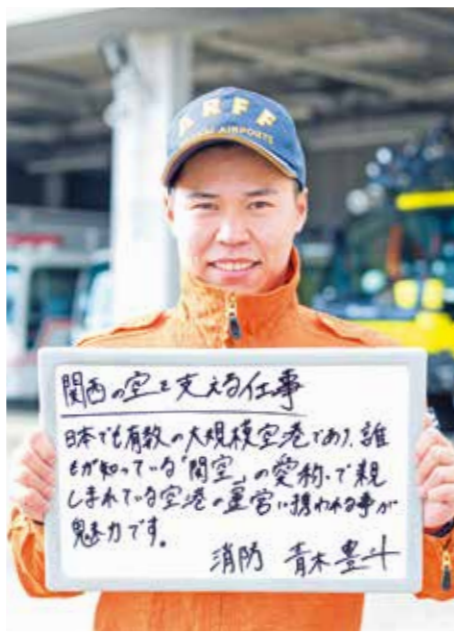 ARFF
KANSAI AIRPORTS
関西の空を支える仕事
日本でも有数の大規模空港であり、誰
もが知っている「関空」の愛称で親
しまれている空港の運営に携われる事が
魅力です。
消防 青木豊斗